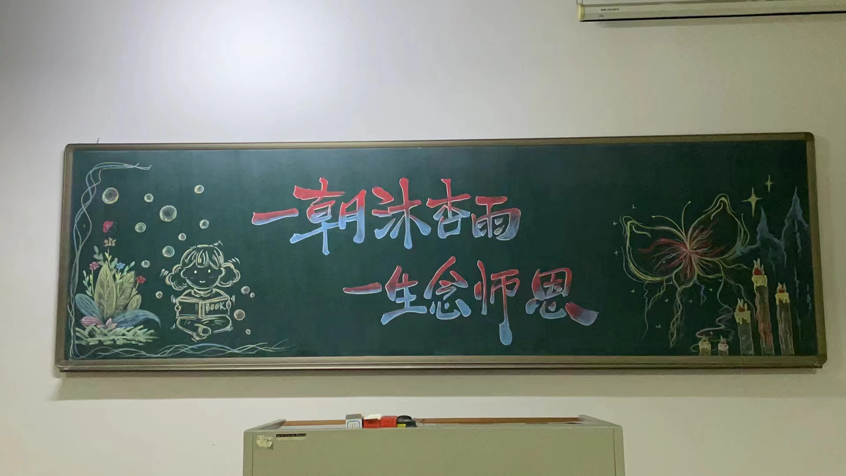 一朝沐杏雨
一生念师恩
BOOK